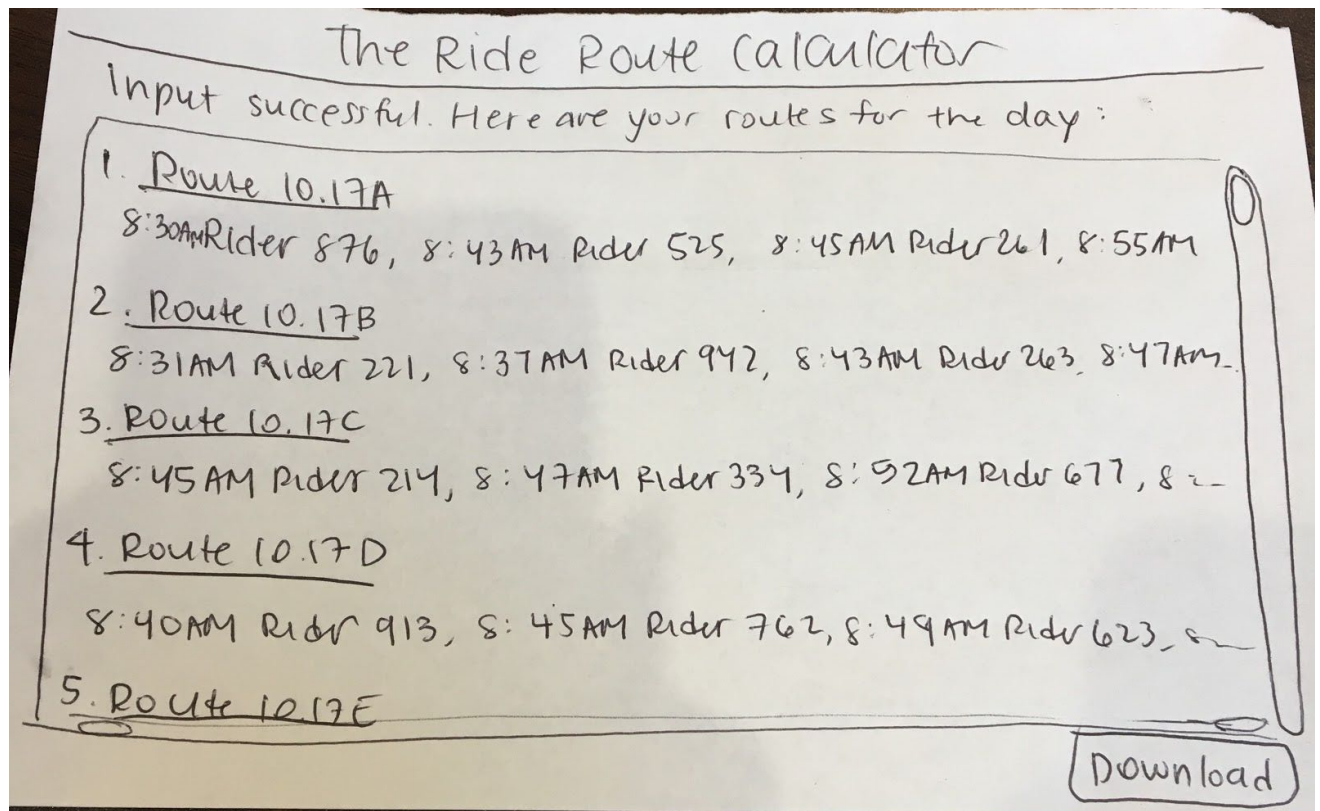 The Ride Route Calculator
Input successful. Here are your routes for the day:
1. Route 10.17A
8:30AM Rider 876, 8:43 AM Rider 525, 8:45AM Rider 261, 8:55AM
2. Route 10.17B
8:31AM Rider 221, 8:37AM Rider 942, 8:43AM Rider 263, 8:47AM
3. Route 10.17C
8:45AM Rider 214, 8:47AM Rider 334, 8:52AM Rider 677, 8:
4. Route 10.17D
8:40AM Rider 913, 8:45AM Rider 762, 8:49AM Rider 623,
5. Route 10.17E
Download